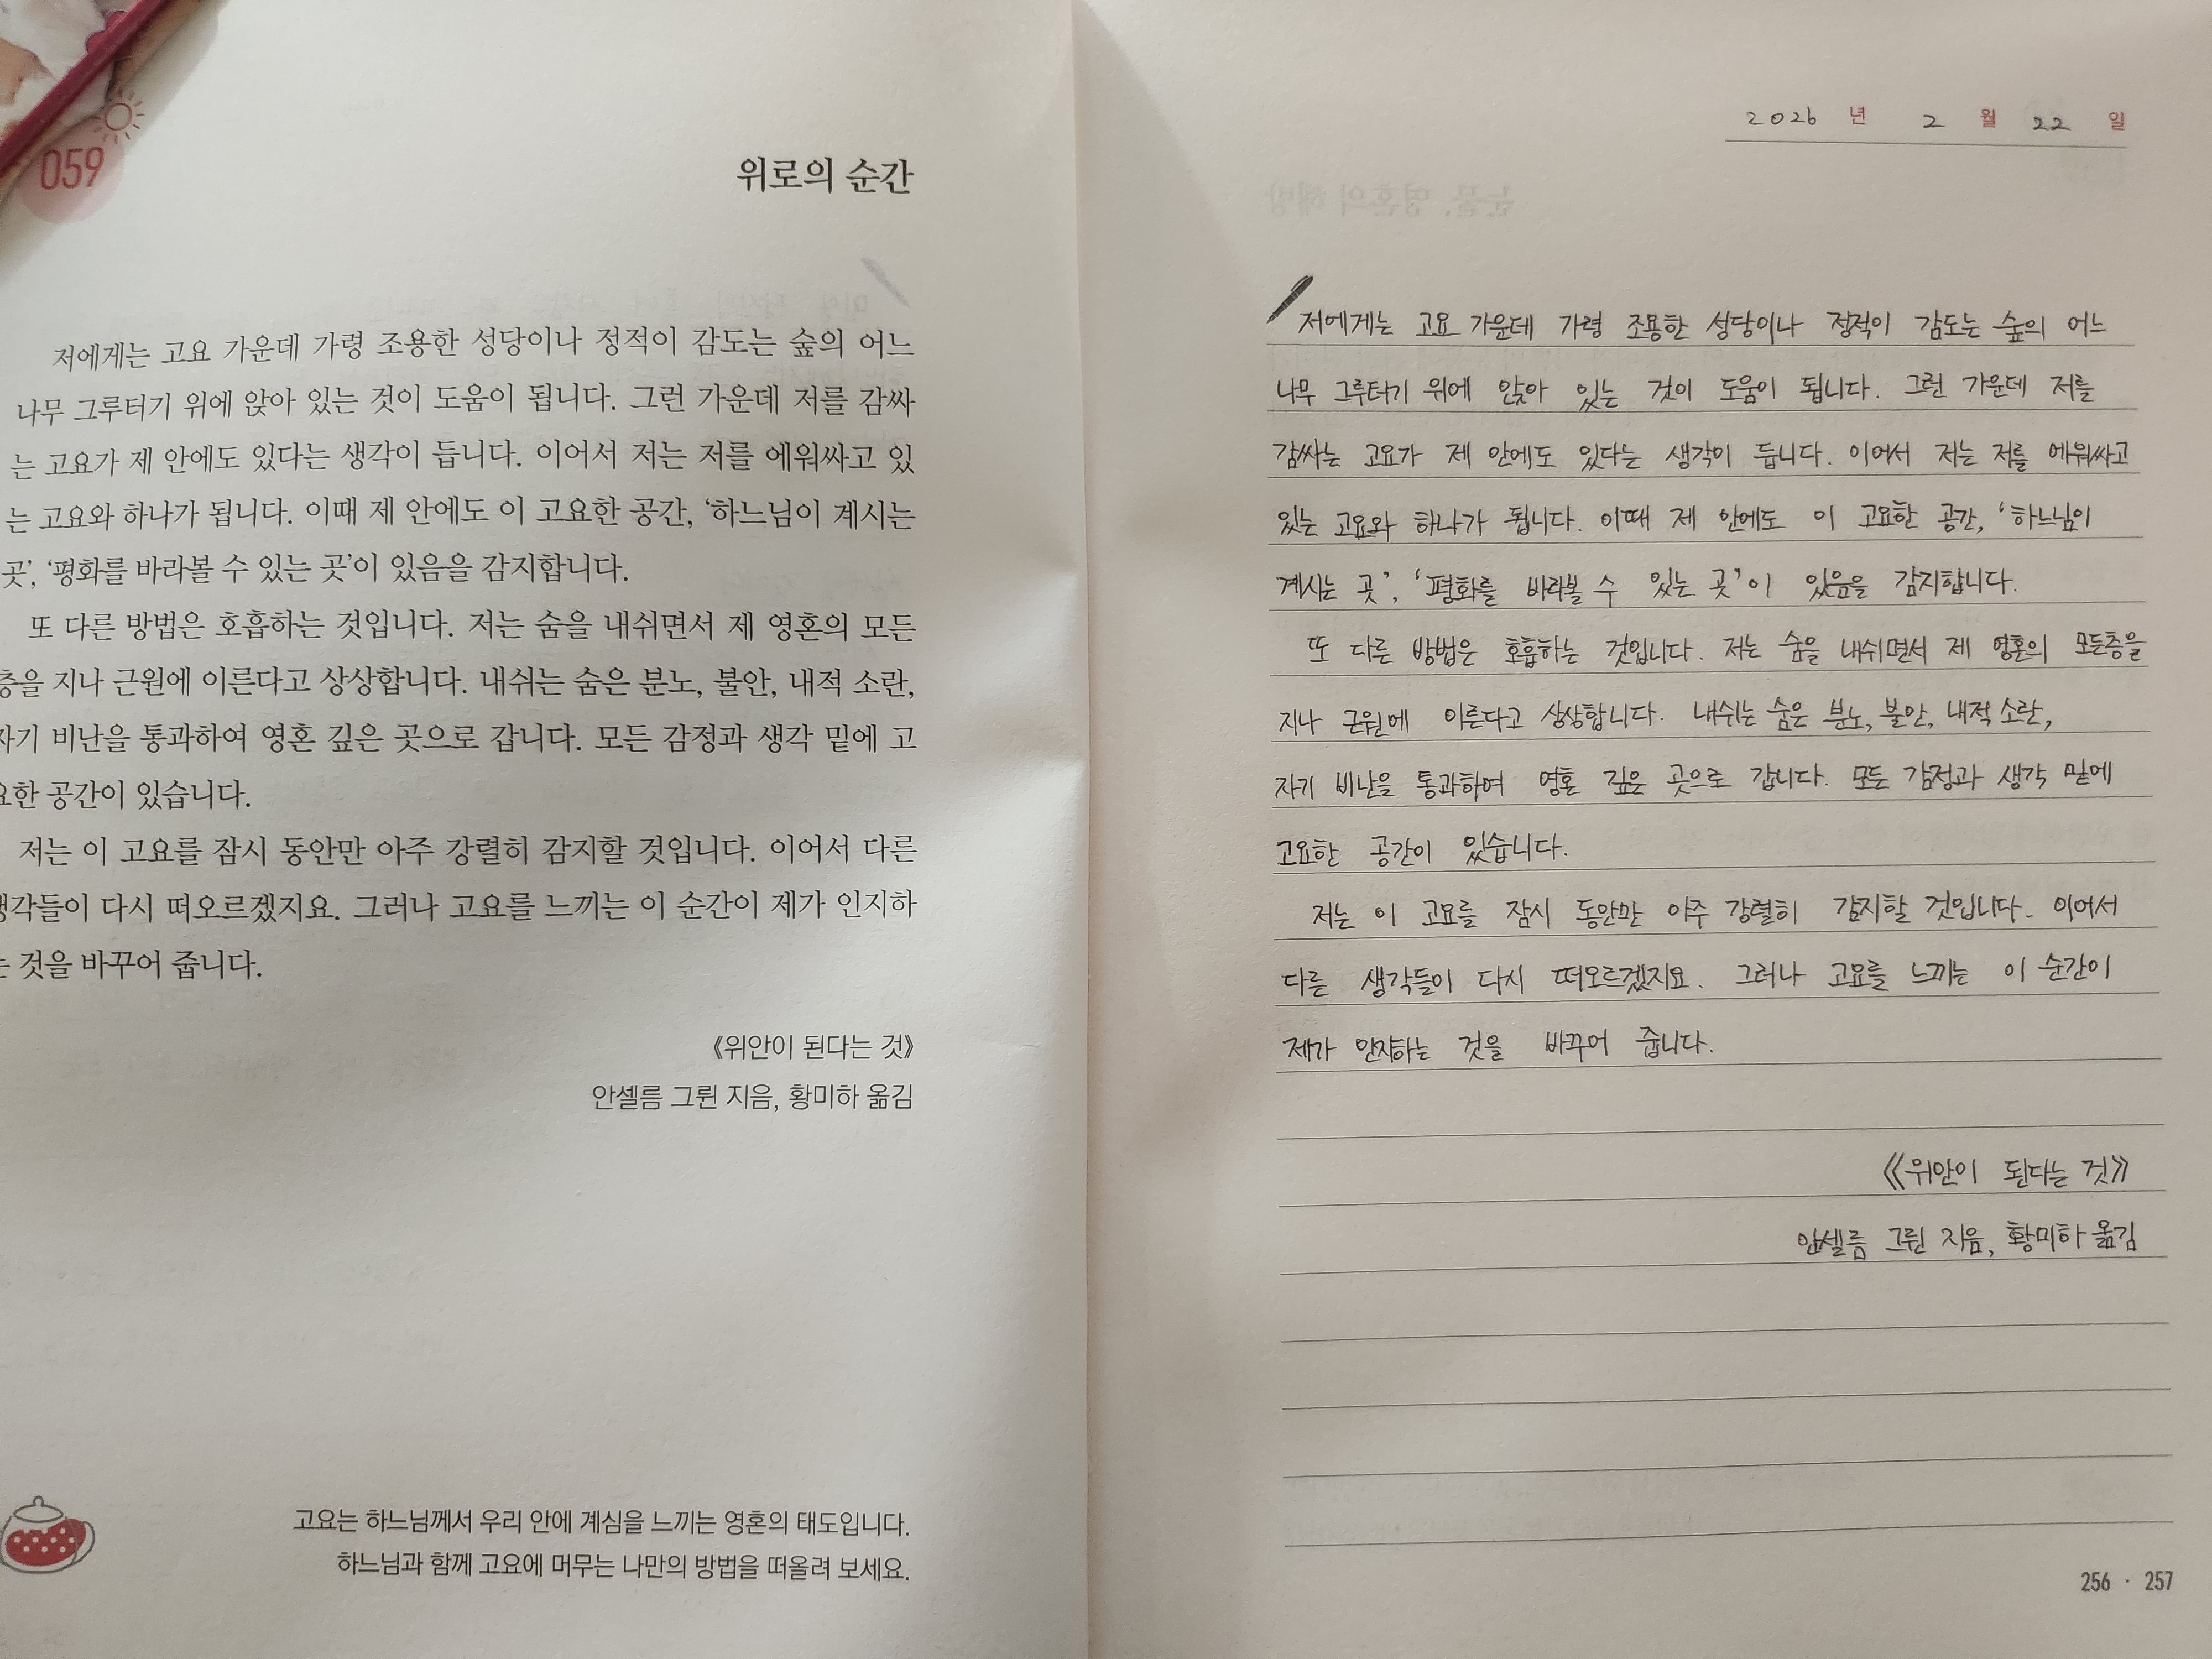 059
위로의 순간
저에게는 고요 가운데 가령 조용한 성당이나 정적이 감도는 숲의 어느
나무 그루터기 위에 앉아 있는 것이 도움이 됩니다. 그런 가운데 저를 감싸
는 고요가 제 안에도 있다는 생각이 듭니다. 이어서 저는 저를 에워싸고 있
는 고요와 하나가 됩니다. 이때 제 안에도 이 고요한 공간, ‘하느님이 계시는
곳’, ‘평화를 바라볼 수 있는 곳’이 있음을 감지합니다.
또 다른 방법은 호흡하는 것입니다. 저는 숨을 내쉬면서 제 영혼의 모든
층을 지나 근원에 이른다고 상상합니다. 내쉬는 숨은 분노, 불안, 내적 소란,
자기 비난을 통과하여 영혼 깊은 곳으로 갑니다. 모든 감정과 생각 밑에 고
요한 공간이 있습니다.
저는 이 고요를 잠시 동안만 아주 강렬히 감지할 것입니다. 이어서 다른
생각들이 다시 떠오르겠지요. 그러나 고요를 느끼는 이 순간이 제가 인지하
는 것을 바꾸어 줍니다.
《위안이 된다는 것》
안셀름 그륀 지음, 황미하 옮김
고요는 하느님께서 우리 안에 계심을 느끼는 영혼의 태도입니다.
하느님과 함께 고요에 머무는 나만의 방법을 떠올려 보세요.
2026 년 2 월 22 일
저에게는 고요 가운데 가령 조용한 성당이나 정적이 감도는 숲의 어느
나무 그루터기 위에 앉아 있는 것이 도움이 됩니다. 그런 가운데 저를
감싸는 고요가 제 안에도 있다는 생각이 듭니다. 이어서 저는 저를 에워싸고
있는 고요와 하나가 됩니다. 이때 제 안에도 이 고요한 공간, ‘하느님이
계시는 곳’, ‘평화를 바라볼 수 있는 곳’이 있음을 감지합니다.
또 다른 방법은 호흡하는 것입니다. 저는 숨을 내쉬면서 제 영혼의 모든층을
지나 근원에 이른다고 상상합니다. 내쉬는 숨은 분노, 불안, 내적 소란,
자기 비난을 통과하여 영혼 깊은 곳으로 갑니다. 모든 감정과 생각 밑에
고요한 공간이 있습니다.
저는 이 고요를 잠시 동안만 아주 강렬히 감지할 것입니다. 이어서
다른 생각들이 다시 떠오르겠지요. 그러나 고요를 느끼는 이 순간이
제가 인지하는 것을 바꾸어 줍니다.
《위안이 된다는 것》
안셀름 그륀 지음, 황미하 옮김
256 · 257